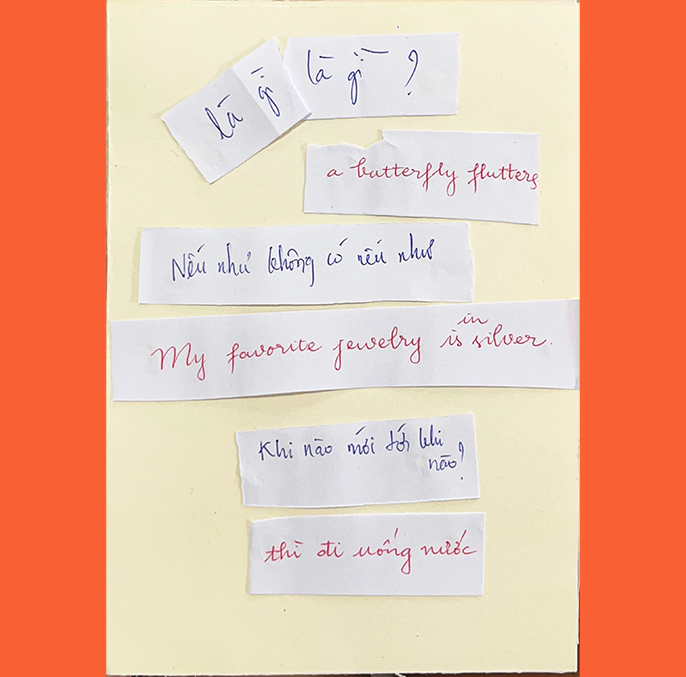 là gì là gì ?
a butterfly flutters
Nếu như không có nếu như
My favorite jewelry is in silver.
Khi nào mới tới khi
nào?
thì đi uống nước